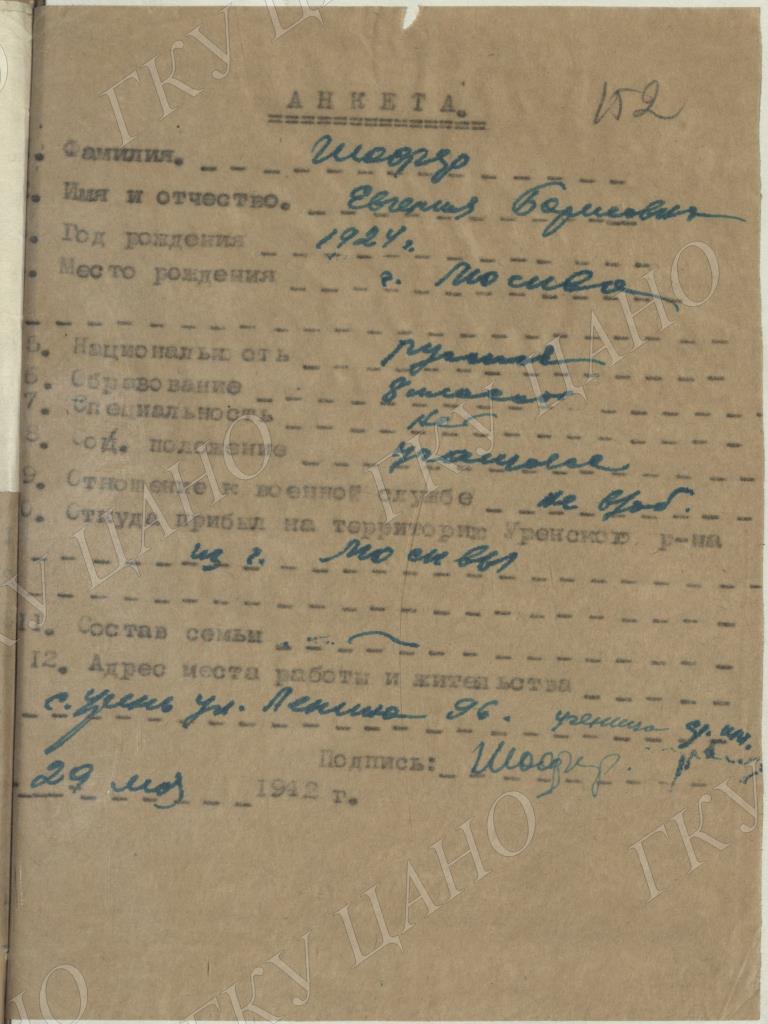 АНКЕТА.
152
. Фамилия. Шафир
. Имя и отчество. Евгения Борисовна
. Год рождения 1924 г.
. Место рождения г. Москва
5. Национальность русская
6. Образование 8 классов
7. Специальность нет
8. Соц. положение учащаяся
9. Отношение к военной службе не вооб.
0. Откуда прибыл на территорию Уренского р-на
из г. Москвы
11. Состав семьи
12. Адрес места работы и жительства
с. Урень ул. Ленина 96. ученица
Подпись:
29 мая 1942 г.
ГКУ ЦАНО
ГКУ ЦАНО
ГКУ ЦАНО
ГКУ ЦАНО
ГКУ ЦАНО